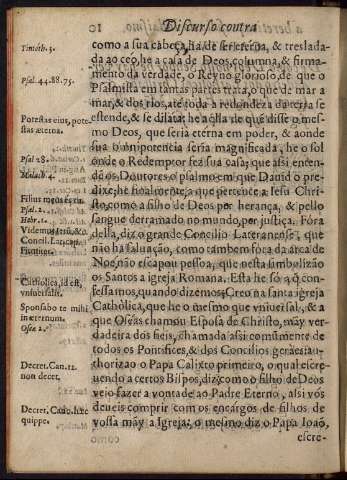 10 Discurso contra
como a sua cabeça, ha de ser eterna, & treslada-
da ao ceo, he a casa de Deos, columna, & firma-
mento da verdade, o Reyno glorioso, de que o
Psalmista em tantas partes trata, o que de mar a
mar, & dos rios, ate toda a redondeza da terra se
estende, & se dilata; he a de que disse o mes-
mo Deos, que seria eterna em poder, & aonde
sua omnipotencia seria magnificada, he o sol
onde o Redemptor fez sua casa; que assi enten-
dẽ os Doutores o psalmo em que Dauid o pre-
dixe; he finalmente a que pertence a Iesu Chri-
sto, como a filho de Deos por herança, & pello
sangue derramado no mundo, por justiça. Fóra
della, diz o grande Concilio Lateranense, que
não ha saluação, como tambem fóra da arca de
Noe, não escapou pessoa, que nesta simbolizão
os Santos a igreja Romana. Esta he só a q̃ con-
fessamos, quando dizemos, Creo na santa igreja
Cathòlica, que he o mesmo que vniuersal, & a
que Oseas chamou Esposa de Christo, mãy ver-
dadeira dos fieis, chamada assi comũmente de
todos os Pontifices, & dos Concilios gerais: au-
thorizao o Papa Calixto primeiro, o qual escre-
uendo a certos Bispos, diz: como o filho de Deos
veio fazer a vontade ao Padre Eterno, assi vòs
deueis comprir com os encargos de filhos de
vossa mãy a Igreja: o mesmo diz o Papa Ioaõ,
escre-
Timoth. 3.
Psal. 44. 88. 75.
Potestas eius, pote
stas æterna.
Psal 28.
Malach 4.
Filius meus es tu.
Psal. 2.
Hebr. 1.
Videmus
Concil. Lat. cap.
Firmiter.
Catholica, id est,
vniuersalis.
Sponsabo te mihi
in æternum.
Osea 2.
Decret. Can. 12.
non decet.
Decret. Can.
quippe.